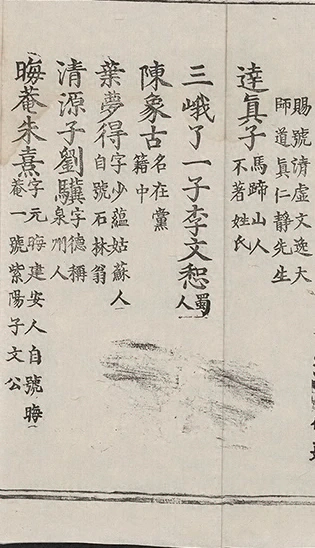 賜號清虛文逸大
師道眞仁靜先生
達眞子馬蹄山人
不著姓氏
三峨了一子李文恕蜀人
陳象古名在黨
籍中
葉夢得字少蘊姑蘇人
自號石林翁
清源子劉驥字德稱
泉州人
晦菴朱熹字元晦建安人自號晦
菴一號紫陽子文公